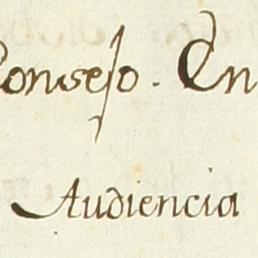 Consejo. En
Audiencia